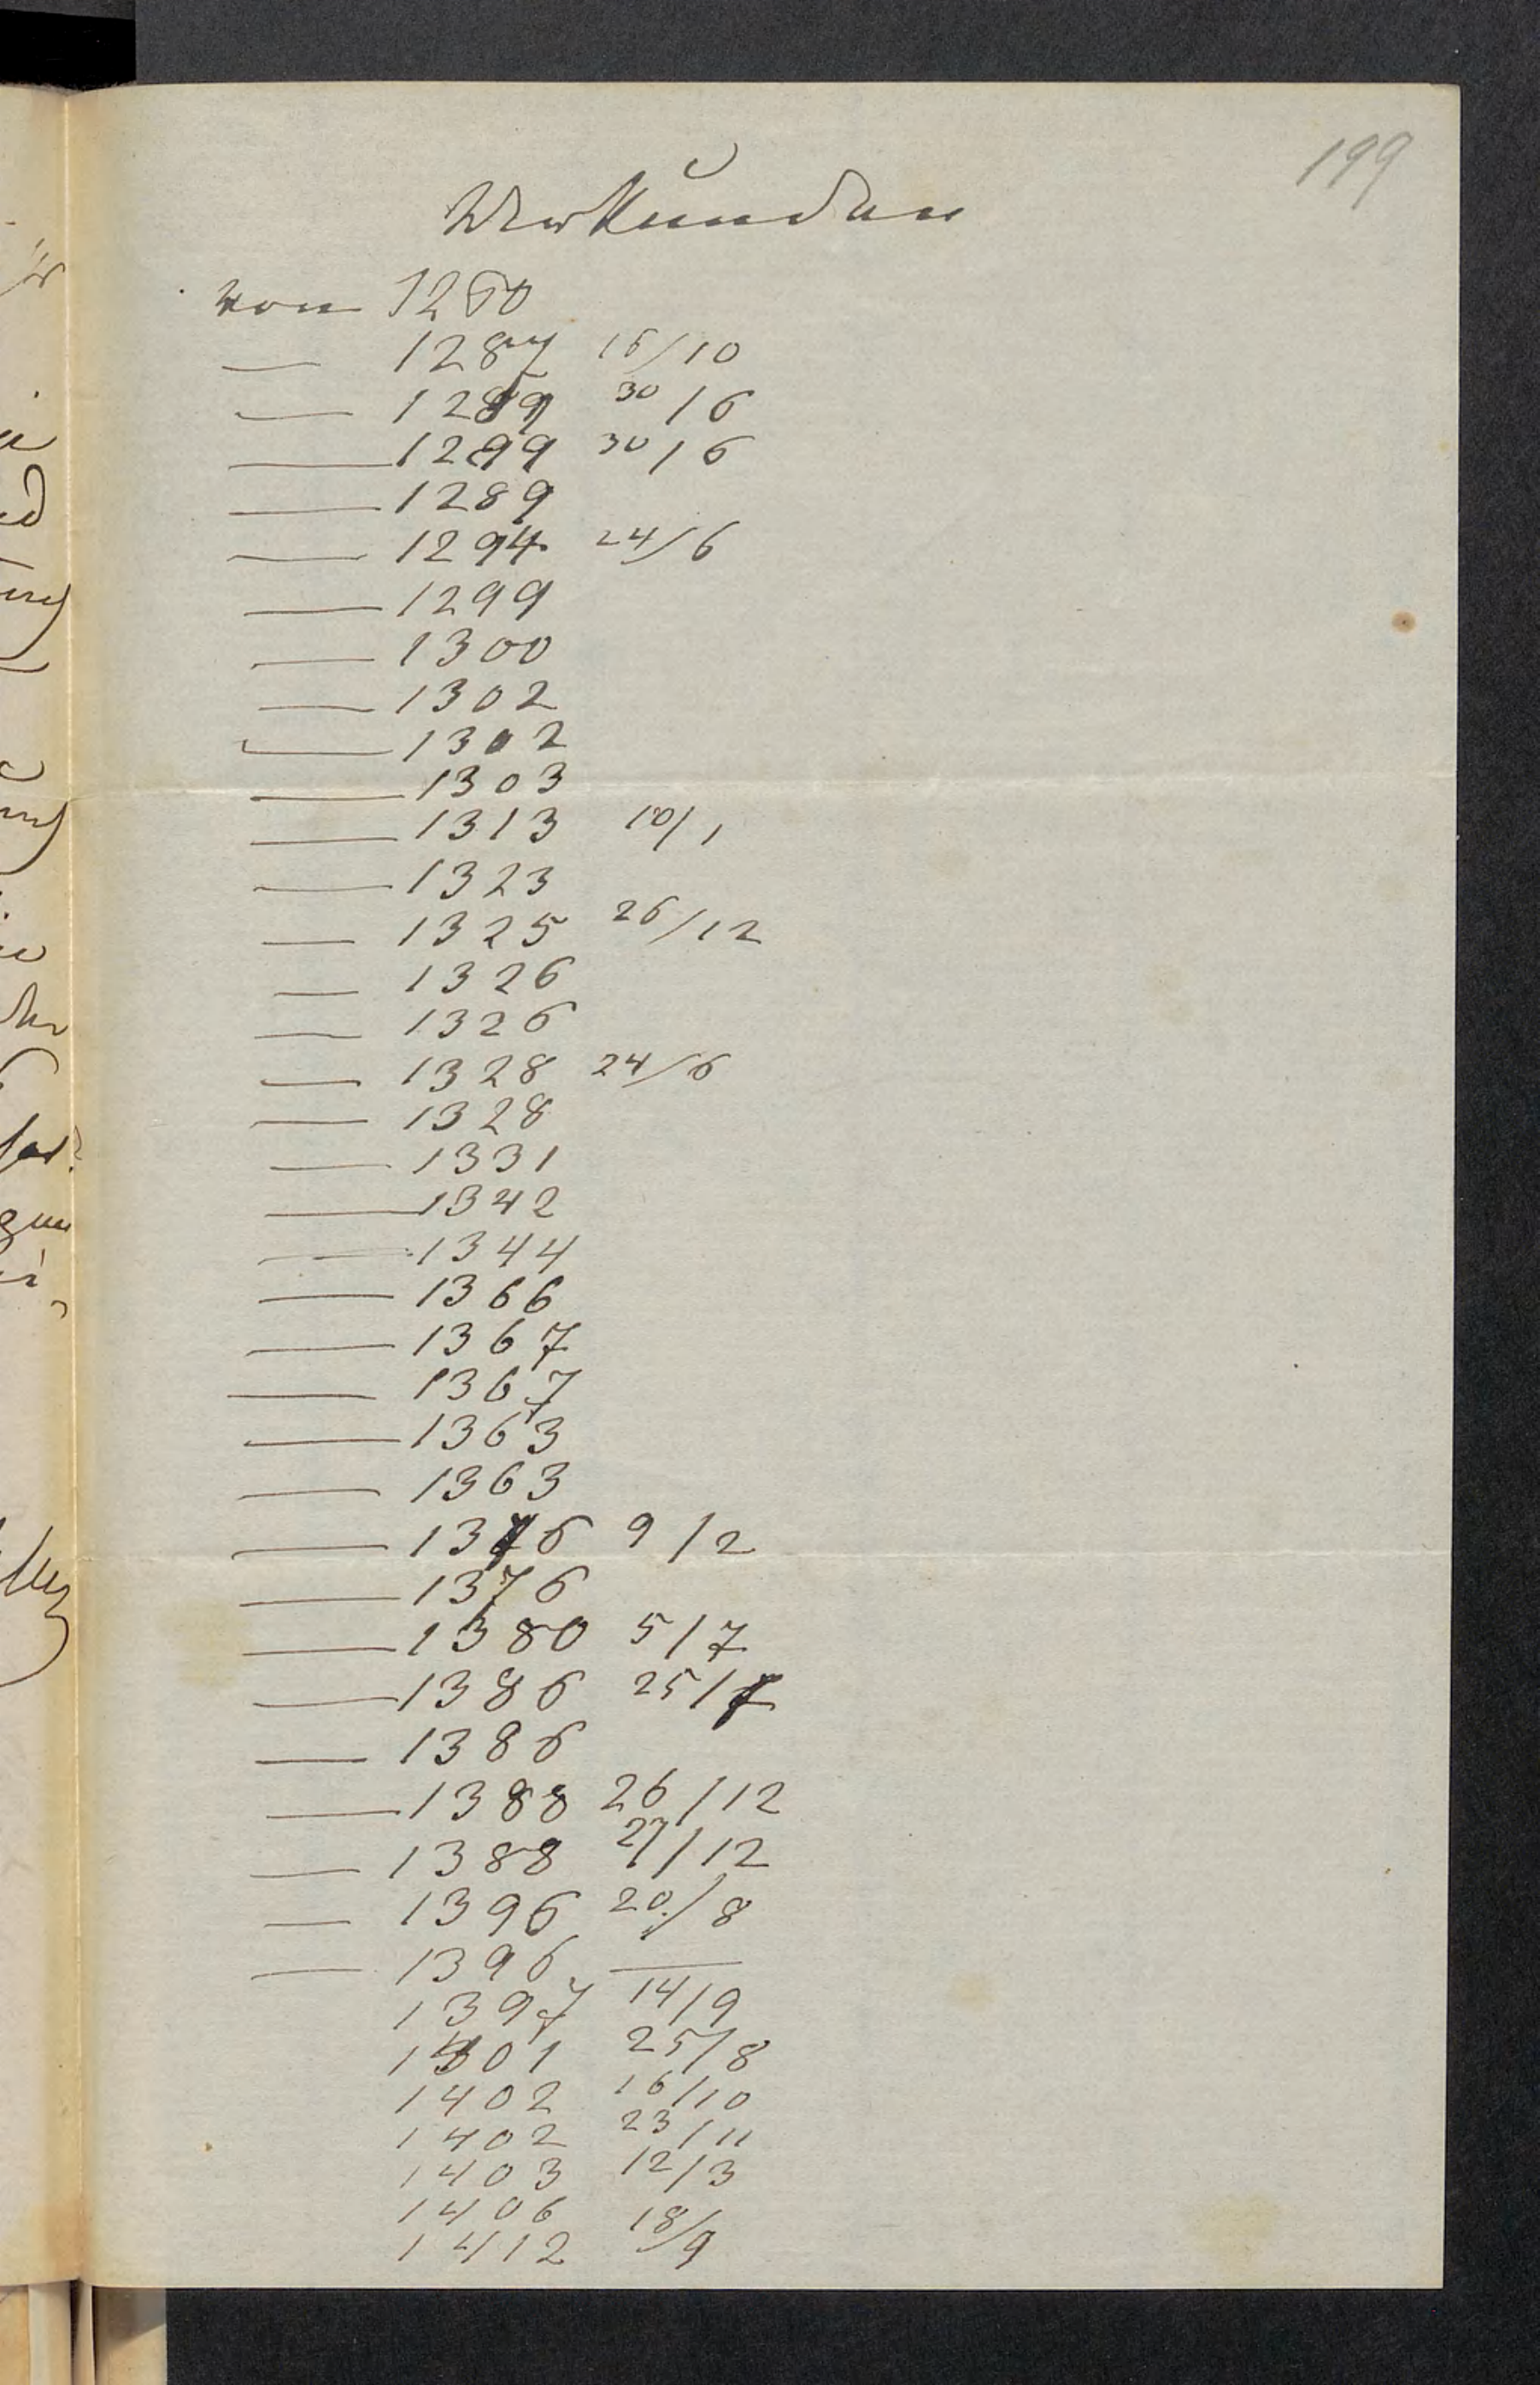 199
Urkunden
von 1260
— 1287 16/10
— 1289 30/6
— 1299 30/6
— 1289
— 1294 24/6
— 1299
— 1300
— 1302
— 1302
— 1303
— 1313 10/1
— 1323
— 1325 26/12
— 1326
— 1326
— 1328 24/6
— 1328
— 1331
— 1342
— 1344
— 1366
— 1367
— 1367
— 1363
— 1363
— 1376 9/2
— 1376
— 1380 5/7
— 1386 25/7
— 1386
— 1388 26/12
— 1388 27/12
— 1396 20./8
— 1396 —
1397 14/9
1401 25/8
1402 16/10
1402 23/11
1403 12/3
1406
1412 18/9